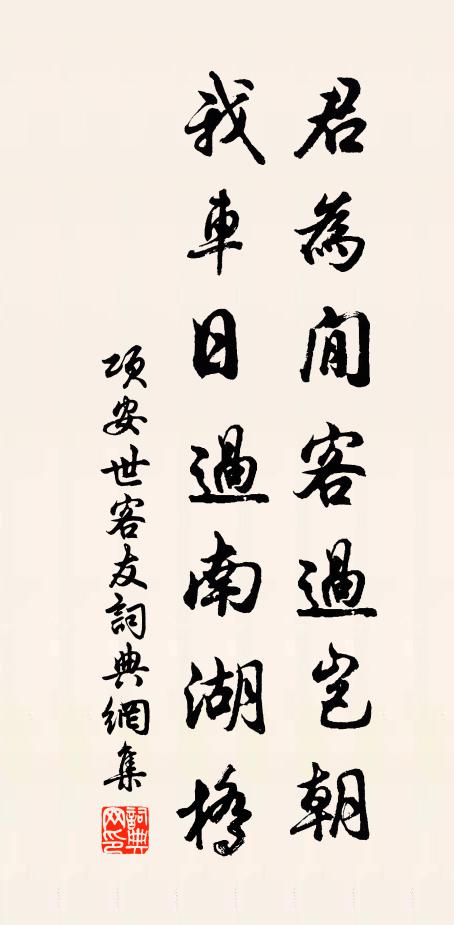 君為閒客過岂朝
我車日過南湖橋
項安世客友詞典網集
詞典網印